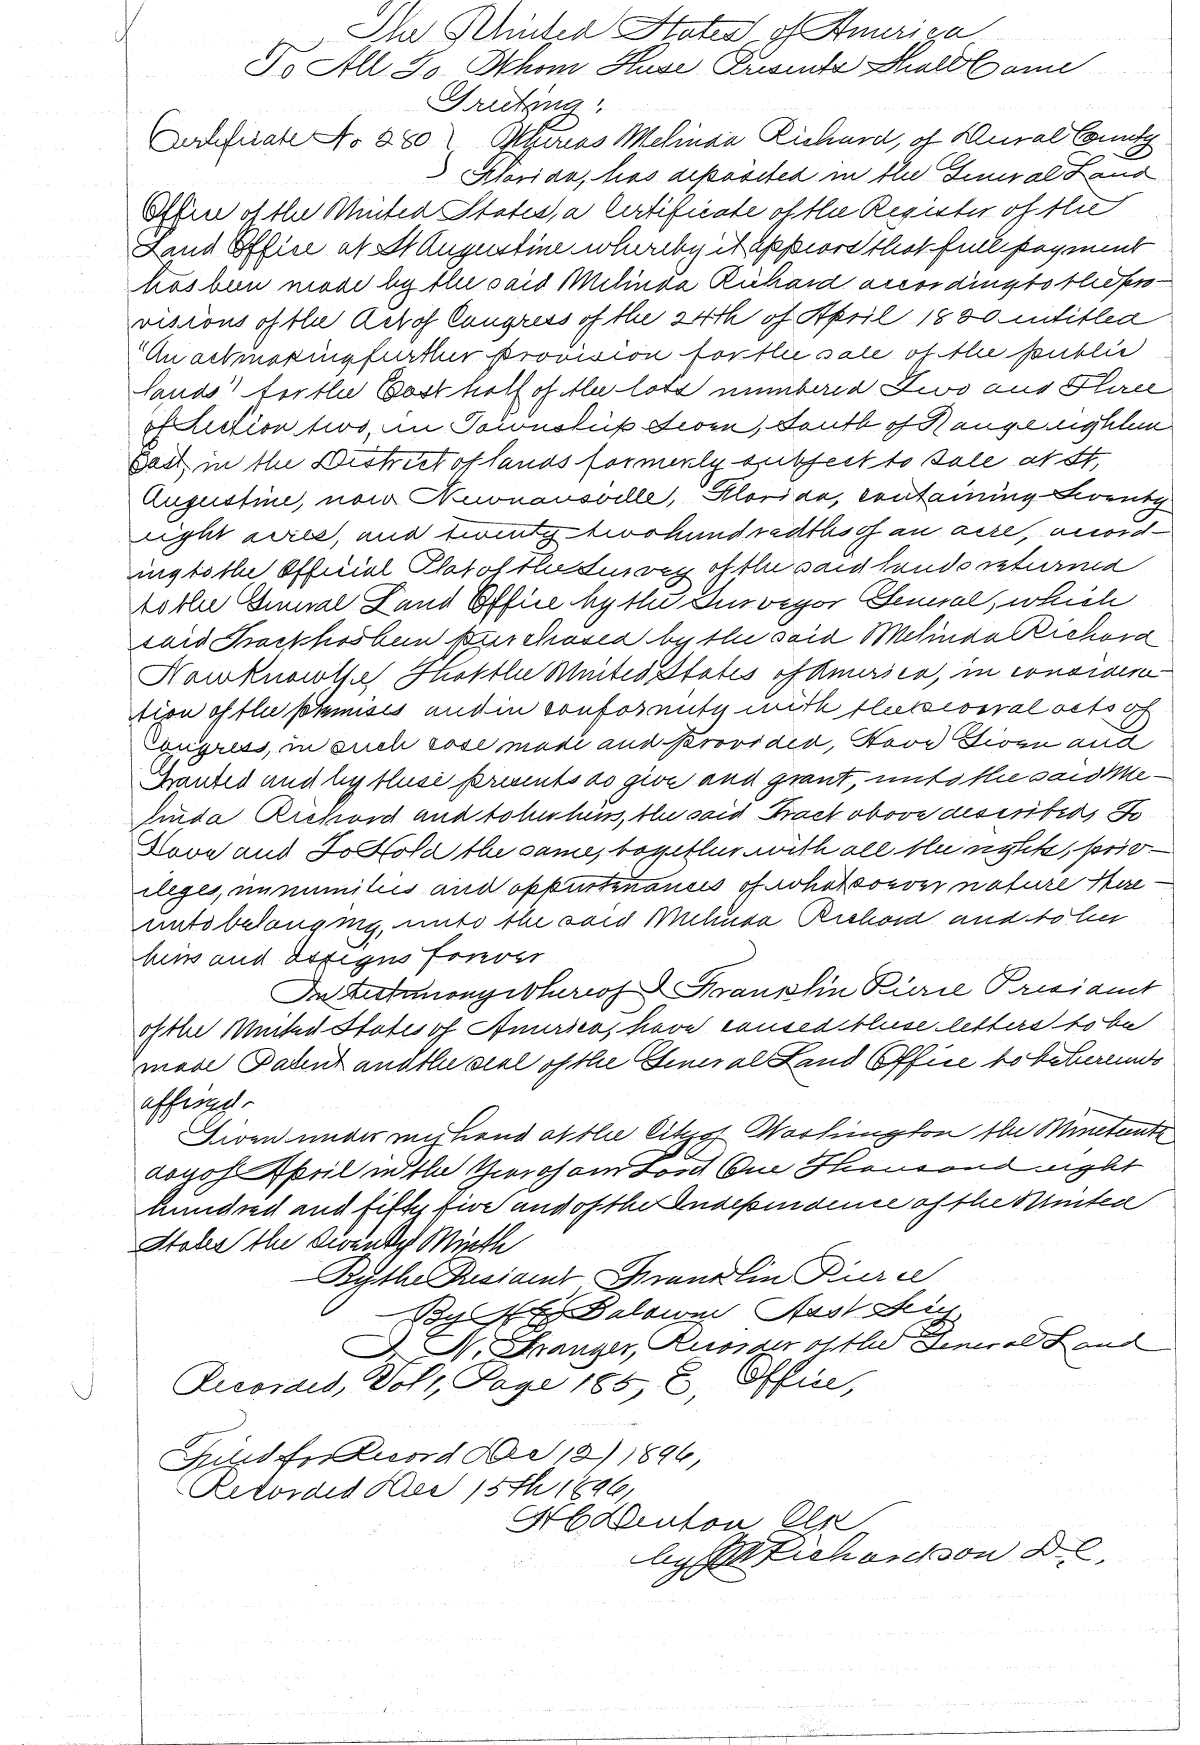 The United States of America
To All To Whom These Presents Shall Came
Greeting:
Certificate No 280 } Whereas Melinda Richard, of Duval County
Florida, has deposited in the General Land
Office of the United States, a Certificate of the Register of the
Land Office at St Augustine whereby it appears that full payment
has been made by the said Melinda Richard according to the pro-
visions of the Act of Congress of the 24th of April 1820 entitled
"An act making further provision for the sale of the public
lands" for the East half of the lots numbered Two and Three
of Section two, in Township Seven, South of Range eighteen
East, in the District of lands formerly subject to sale at St,
Augustine, now Newnansville, Florida, containing Seventy
eight acres, and twenty two hundredths of an acre, accord-
ing to the Official Plat of the Survey of the said lands returned
to the General Land Office by the Surveyor General, which
said Tract has been purchased by the said Melinda Richard
Now Know Ye, That the United States of America, in considera-
tion of the premises and in conformity with the several acts of
Congress, in such case made and provided, Have Given and
Granted and by these presents do give and grant, unto the said Me-
linda Richard and to her heirs, the said Tract above described, To
Have and To Hold the same, together with all the rights, priv-
ileges, immunities and appurtenances of whatsoever nature there-
unto belonging, unto the said Melinda Richard and to her
heirs and assigns forever
In testimony Whereof I Franklin Pierce President
of the United States of America, have caused these letters to be
made Patent and the seal of the General Land Office to be hereunto
affixed.
Given under my hand at the City of Washington the Nineteenth
day of April in the Year of our Lord One Thousand eight
hundred and fifty five and of the Independence of the United
States the Seventy Ninth
By the President Franklin Pierce
By Baldwin Asst Secy
N. Granger, Recorder of the General Land
Recorded, Vol 1, Page 185, E, Office,
Filed for Record Dec 12) 1896,
Recorded Dec 15th 1896,
H C Denton Clk
by Richardson D.C.